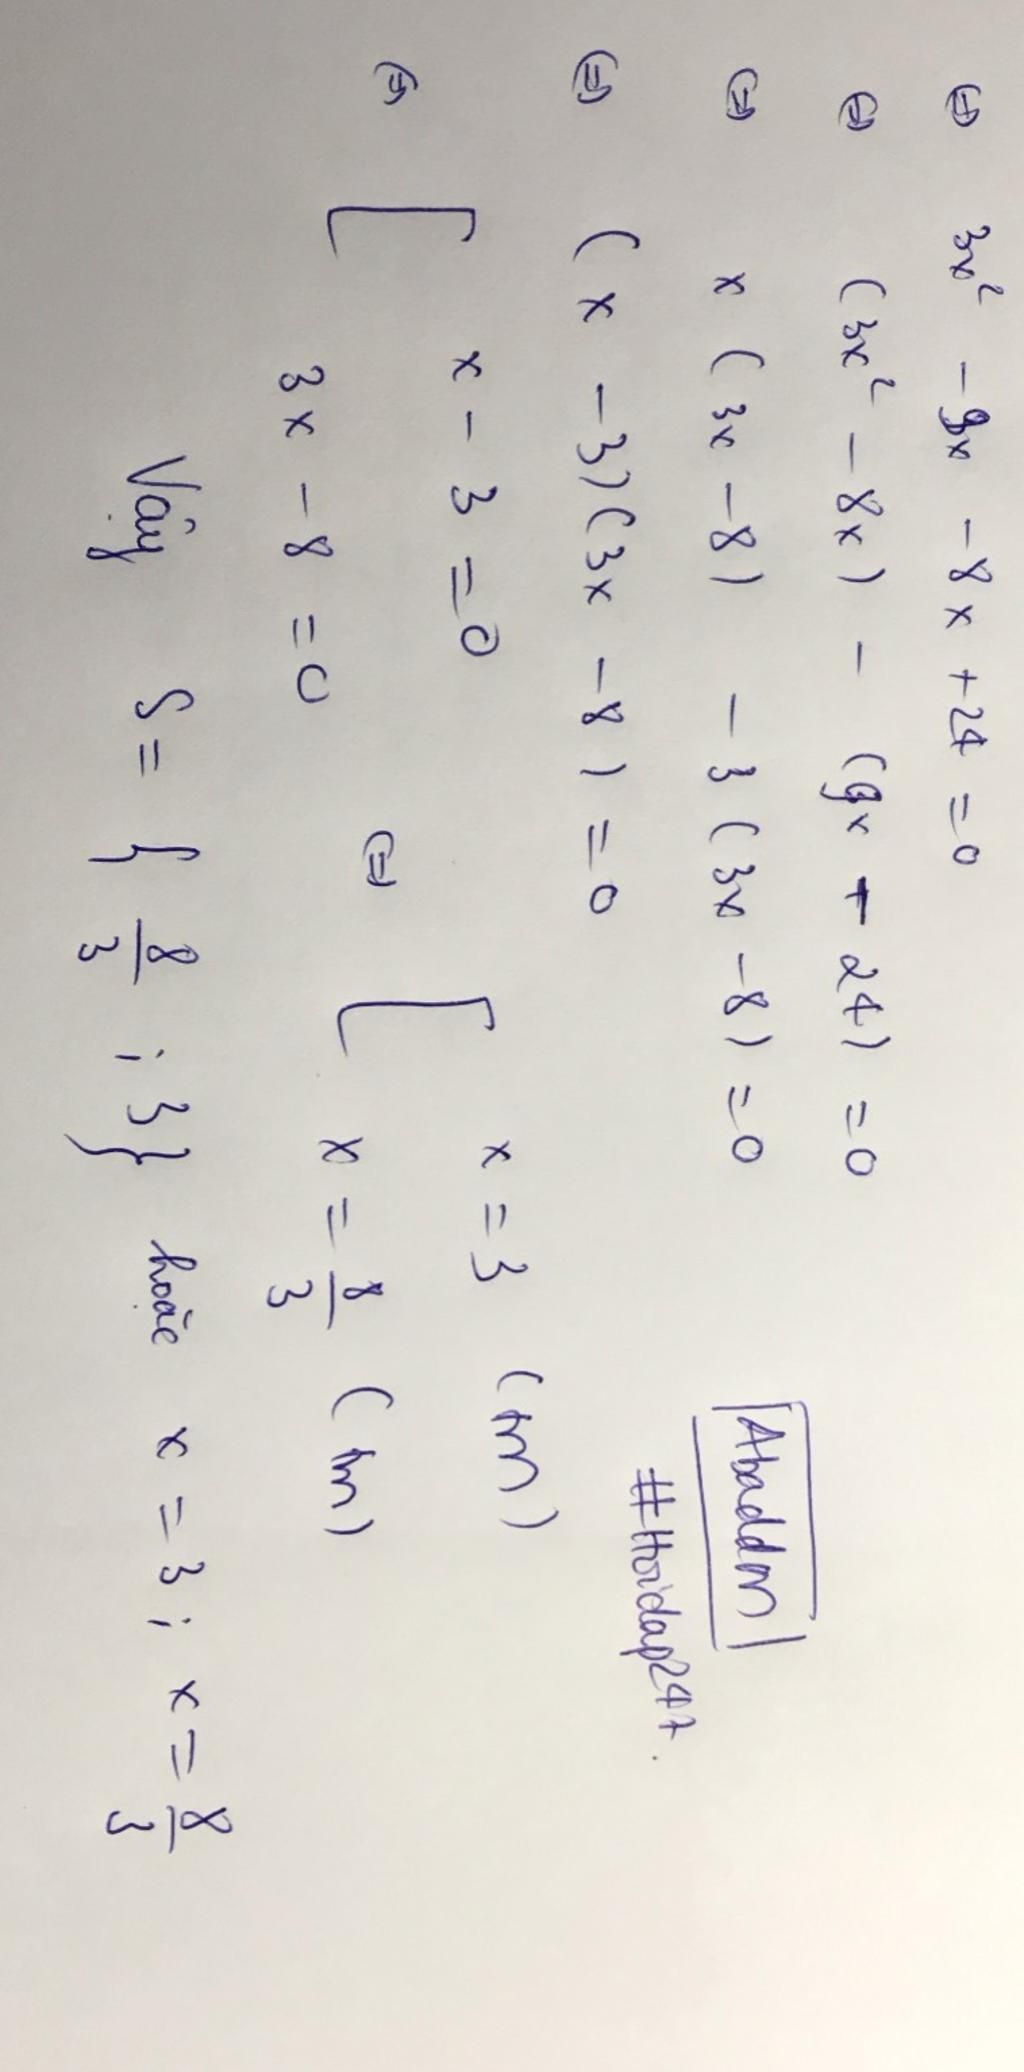 ⇔ 3x² - 9x - 8x + 24 = 0
⇔ (3x² - 8x) - (9x + 24) = 0
⇔ x (3x - 8) - 3 (3x - 8) = 0
⇔ (x - 3) (3x - 8) = 0
⇔ [ x - 3 = 0 ⇔ [ x = 3 (tm)
3x - 8 = 0 x = 8/3 (tm)
Vậy S = { 8/3 ; 3} hoặc x = 3 ; x = 8/3
Abaddon
#Hoidap247.